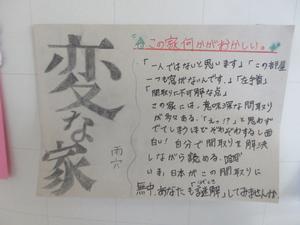 変な家
雨穴
この家、何かがおかしい。
「一人ではないと思います」「この部屋
一つも窓がないんです。」「左手首」
「間取りに不可解な点」
この家には、意味深な間取り
がある。「えっ!?」と思わず
でてしまうほどぞわぞわするし面
白い!自分で間取りを解決
しながら読める、
いま、日本がこの間取りに
無中。あなたも「謎解」してみませんか